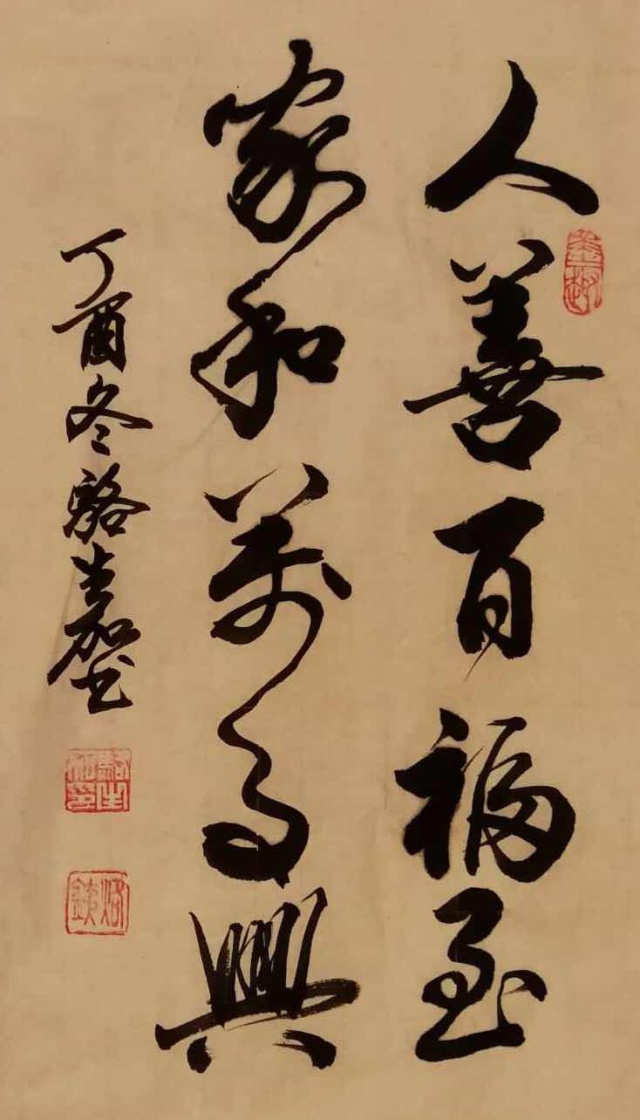 人善百福至
家和萬事興
丁酉冬駱生加書